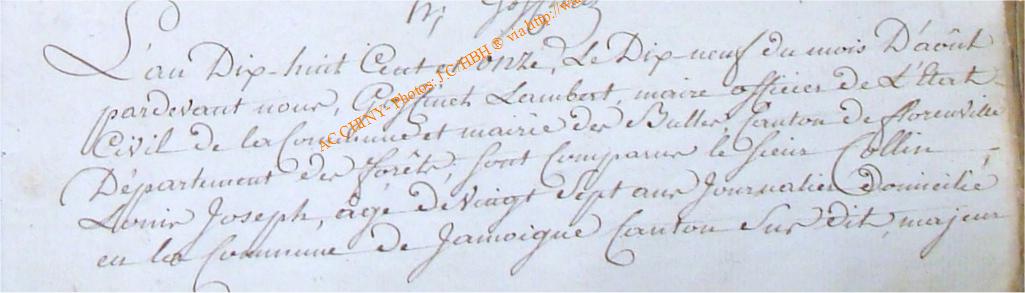 L'an Dix-huit Cent et onze, Le Dix-neuf du mois D'août
pardevant nous, Goffinet Lambert, maire officier de L'Etat
Civil de la Commune et mairie des Bulles, Canton de florenville
Département des forêts, sont Comparus le sieur Collin
Louis Joseph, âgé de vingt sept ans Journalier domicilié
en la Commune de Jamoigne Canton Sus dit, majeur
AC CHINY- Photos: J C HBH ® via http://w